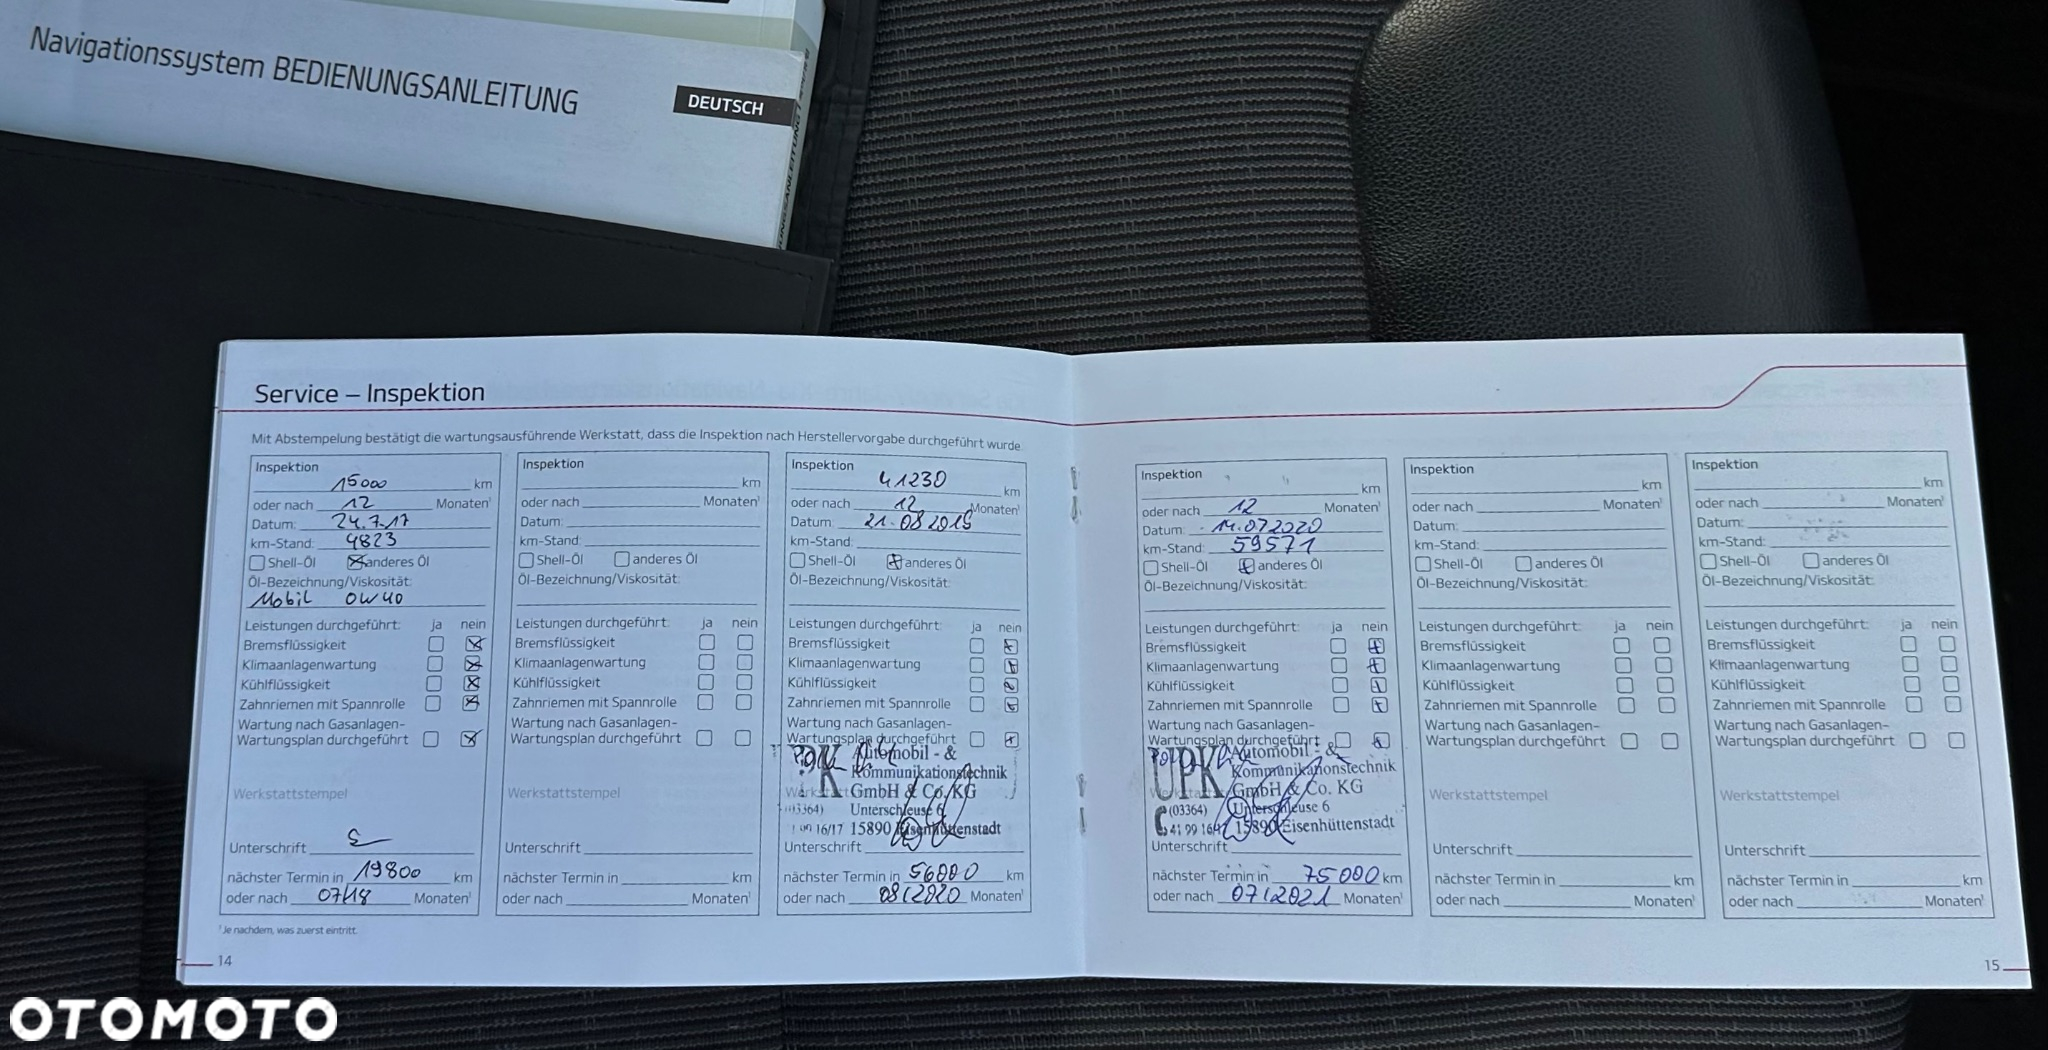 Navigationssystem BEDIENUNGSANLEITUNG
DEUTSCH
Service – Inspektion
Mit Abstempelung bestätigt die wartungsausführende Werkstatt, dass die Inspektion nach Herstellervorgabe durchgeführt wurde.
Inspektion
15000 km
oder nach 12 Monaten¹
Datum: 24.7.17
km-Stand: 9823
Shell-Öl anderes Öl
Öl-Bezeichnung/Viskosität:
Mobil 0W40
Leistungen durchgeführt: ja nein
Bremsflüssigkeit
Klimaanlagenwartung
Kühlflüssigkeit
Zahnriemen mit Spannrolle
Wartung nach Gasanlagen-
Wartungsplan durchgeführt
Werkstattstempel
Unterschrift
nächster Termin in 19800 km
oder nach 07/18 Monaten¹
¹ Je nachdem, was zuerst eintritt.
14
Inspektion
km
oder nach Monaten¹
Datum:
km-Stand:
Shell-Öl anderes Öl
Öl-Bezeichnung/Viskosität:
Leistungen durchgeführt: ja nein
Bremsflüssigkeit
Klimaanlagenwartung
Kühlflüssigkeit
Zahnriemen mit Spannrolle
Wartung nach Gasanlagen-
Wartungsplan durchgeführt
Werkstattstempel
Unterschrift
nächster Termin in km
oder nach Monaten¹
Inspektion
41230 km
oder nach 12 Monaten¹
Datum: 21.08.2019
km-Stand:
Shell-Öl anderes Öl
Öl-Bezeichnung/Viskosität:
Leistungen durchgeführt: ja nein
Bremsflüssigkeit
Klimaanlagenwartung
Kühlflüssigkeit
Zahnriemen mit Spannrolle
Wartung nach Gasanlagen-
Wartungsplan durchgeführt
Automobil - &
Kommunikationstechnik
GmbH & Co. KG
(03364) Unterschleuse 6
16/17 15890 Eisenhüttenstadt
Unterschrift
nächster Termin in 56000 km
oder nach 08/2020 Monaten¹
Inspektion
km
oder nach 12 Monaten¹
Datum: 14.07.2020
km-Stand: 59571
Shell-Öl anderes Öl
Öl-Bezeichnung/Viskosität:
Leistungen durchgeführt: ja nein
Bremsflüssigkeit
Klimaanlagenwartung
Kühlflüssigkeit
Zahnriemen mit Spannrolle
Wartung nach Gasanlagen-
Wartungsplan durchgeführt
UPK Automobil - &
Kommunikationstechnik
GmbH & Co. KG
(03364) Unterschleuse 6
41 99 16/17 15890 Eisenhüttenstadt
Unterschrift
nächster Termin in 75000 km
oder nach 07/2021 Monaten¹
Inspektion
km
oder nach Monaten¹
Datum:
km-Stand:
Shell-Öl anderes Öl
Öl-Bezeichnung/Viskosität:
Leistungen durchgeführt: ja nein
Bremsflüssigkeit
Klimaanlagenwartung
Kühlflüssigkeit
Zahnriemen mit Spannrolle
Wartung nach Gasanlagen-
Wartungsplan durchgeführt
Werkstattstempel
Unterschrift
nächster Termin in km
oder nach Monaten¹
Inspektion
km
oder nach Monaten¹
Datum:
km-Stand:
Shell-Öl anderes Öl
Öl-Bezeichnung/Viskosität:
Leistungen durchgeführt: ja nein
Bremsflüssigkeit
Klimaanlagenwartung
Kühlflüssigkeit
Zahnriemen mit Spannrolle
Wartung nach Gasanlagen-
Wartungsplan durchgeführt
Werkstattstempel
Unterschrift
nächster Termin in km
oder nach Monaten¹
15
OTOMOTO